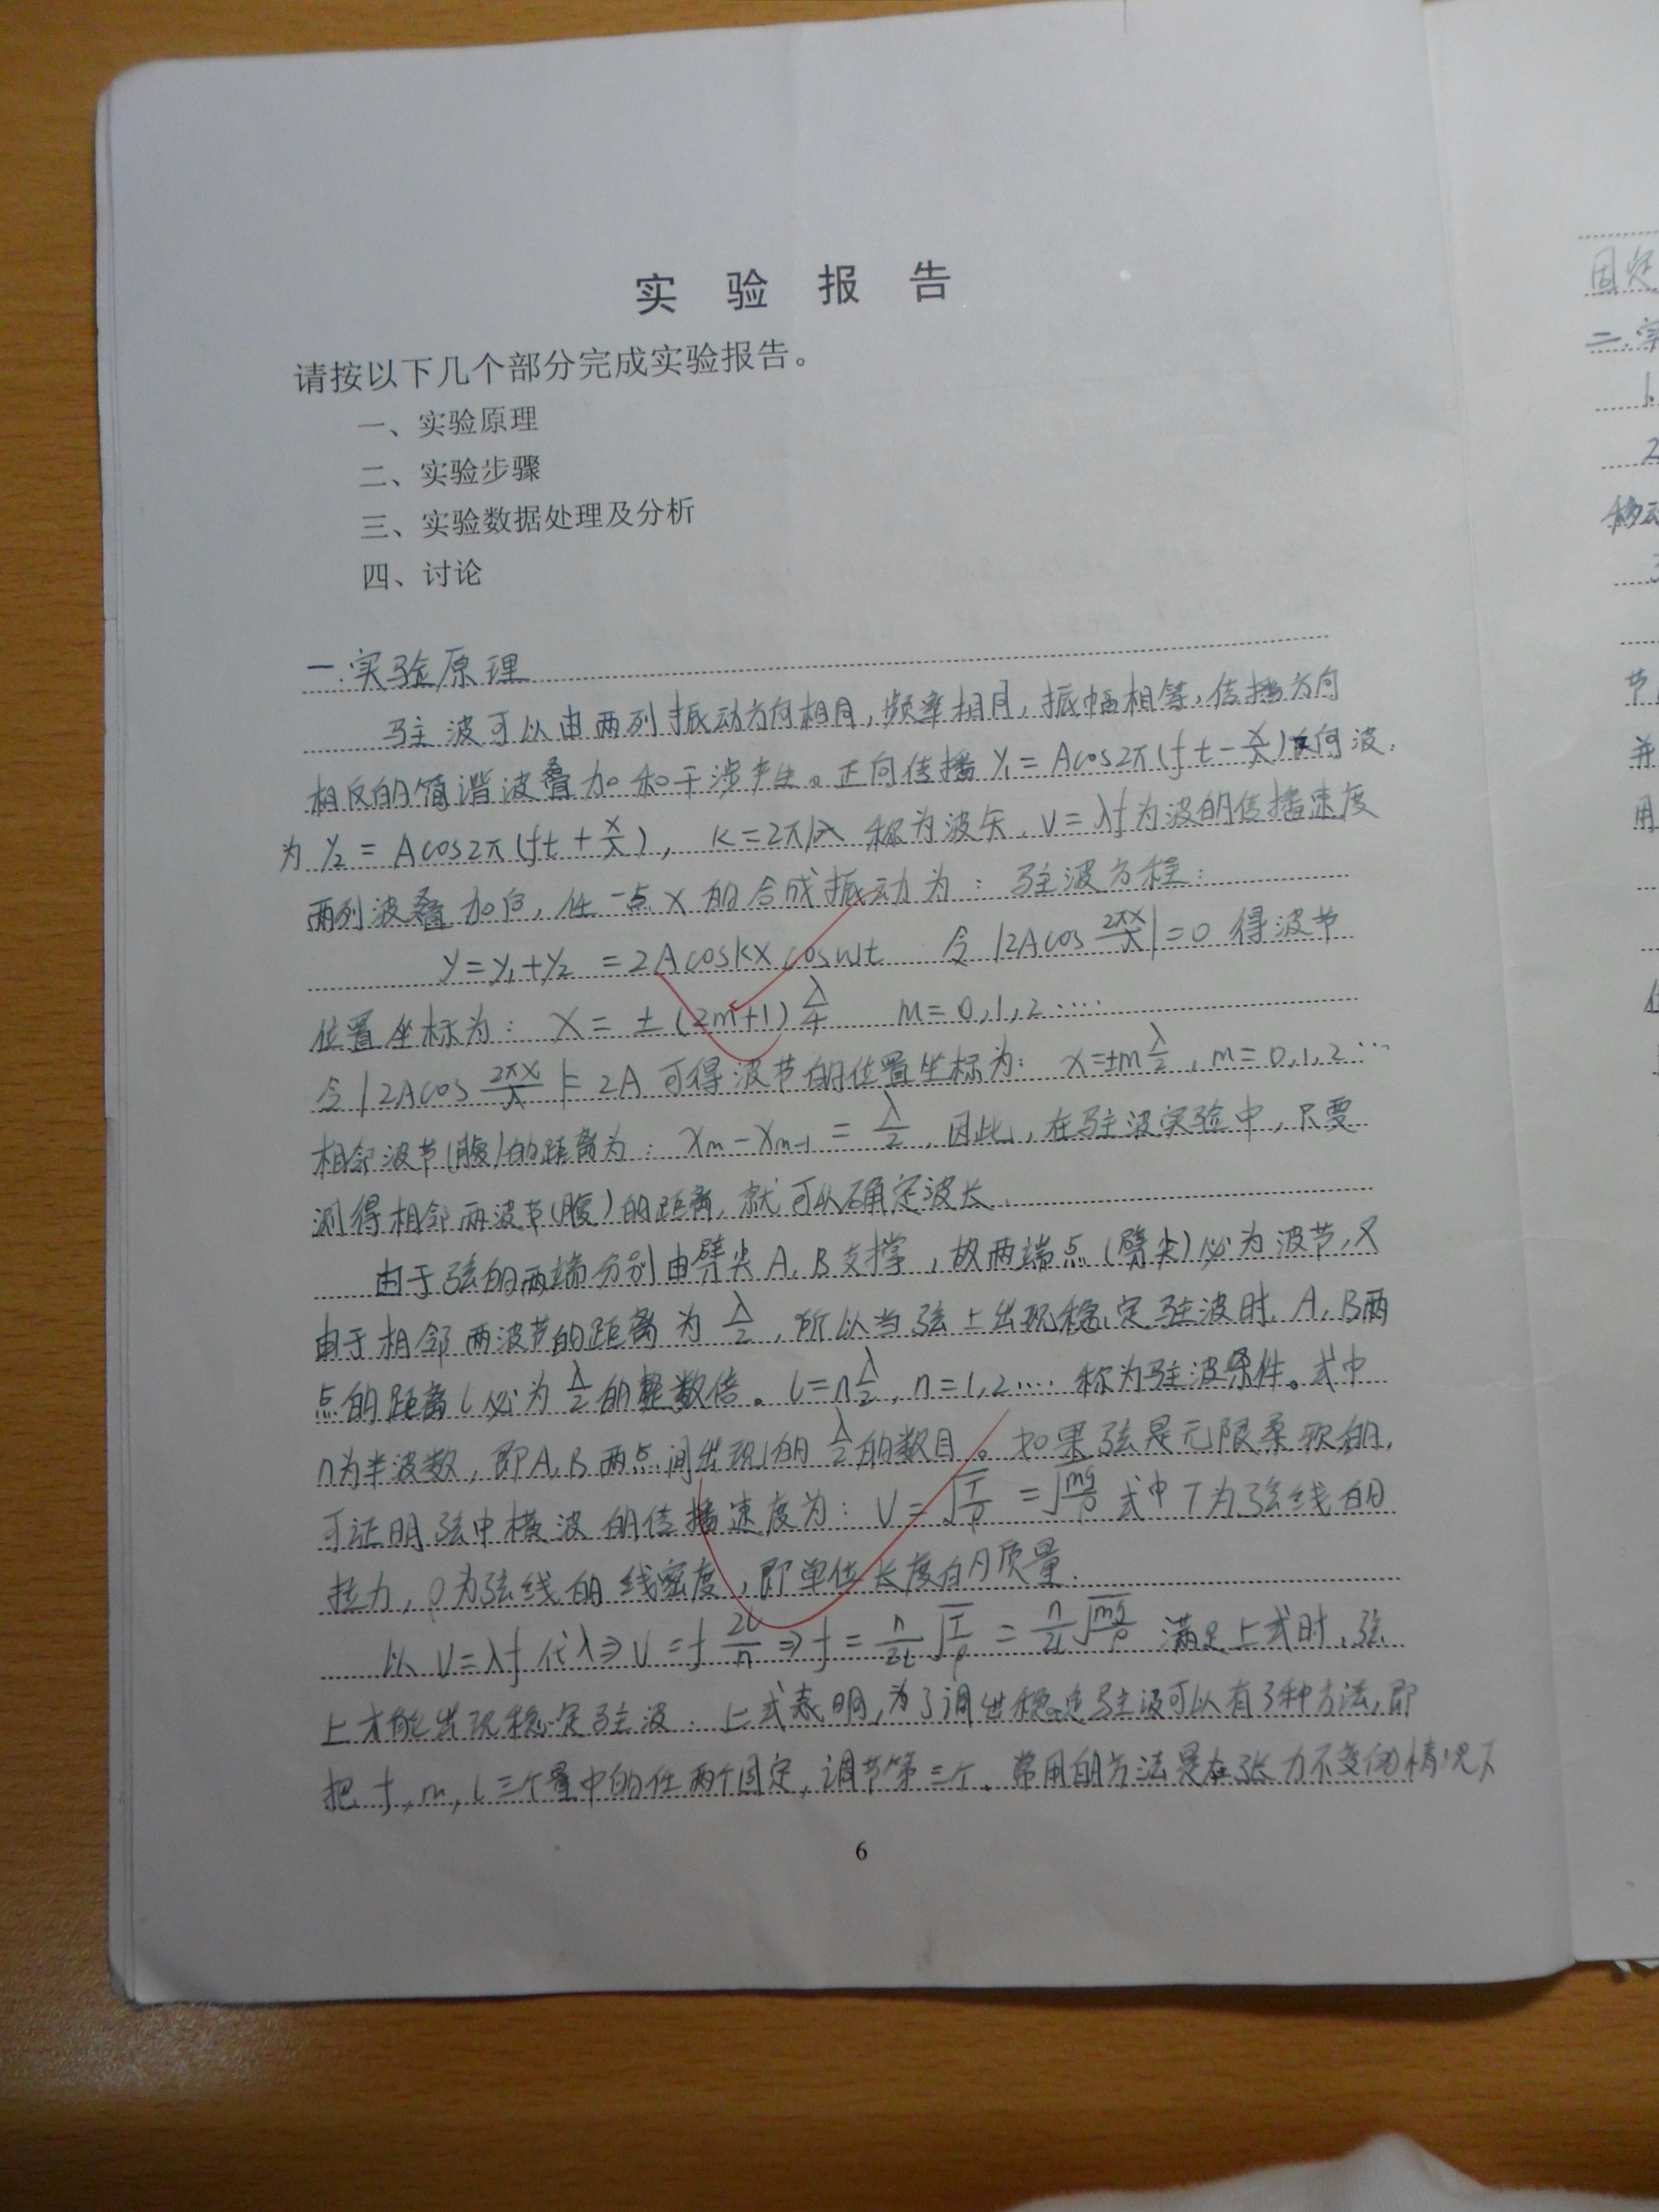 实验报告
请按以下几个部分完成实验报告。
一、实验原理
二、实验步骤
三、实验数据处理及分析
四、讨论
一.实验原理
驻波可以由两列振动方向相同,频率相同,振幅相等,传播方向
相反的简谐波叠加和干涉产生。正向传播 y₁ = Acos2π(ft - x/λ) 反向波.
为 y₂ = Acos2π(ft + x/λ), k=2π/λ 称为波矢. v=λf为波的传播速度
两列波叠加后,任一点x的合成振动为: 驻波方程:
y=y₁+y₂ = 2Acoskx coswt 令 |2Acos 2πx/λ|=0 得波节
位置坐标为: x = ±(2m+1) λ/4 m=0,1,2……
令|2Acos 2πx/λ|= 2A 可得波节的位置坐标为: x=±m λ/2, m=0,1,2…
相邻波节(腹)的距离为: xm-xm-1 = λ/2, 因此,在驻波实验中,只要
测得相邻两波节(腹)的距离,就可以确定波长.
由于弦的两端分别由劈尖A,B支撑,故两端点(劈尖)必为波节,又
由于相邻两波节的距离为 λ/2,所以当弦上出现稳定驻波时,A,B两
点的距离l必为 λ/2 的整数倍。l=n λ/2, n=1,2…. 称为驻波条件。式中
n为半波数,即A,B两点间出现的 λ/2 的数目。如果弦是无限柔软的,
可证明弦中横波的传播速度为: V=√(T/ρ) =√(mg/ρ) 式中T为弦线的
拉力,ρ为弦线的线密度,即单位长度的质量.
以 V=λf 代λ⇒V=f 2l/n ⇒f= n/2l √(T/ρ) = n/2l √(mg/ρ) 满足上式时,弦
上才能出现稳定驻波. 上式表明,为了调出稳定驻波可以有3种方法,即
把f,m,l三个量中的任两个固定,调节第三个.常用的方法是在张力不变的情况下
6
固定
二.实
1.
2
移动
节
并
用